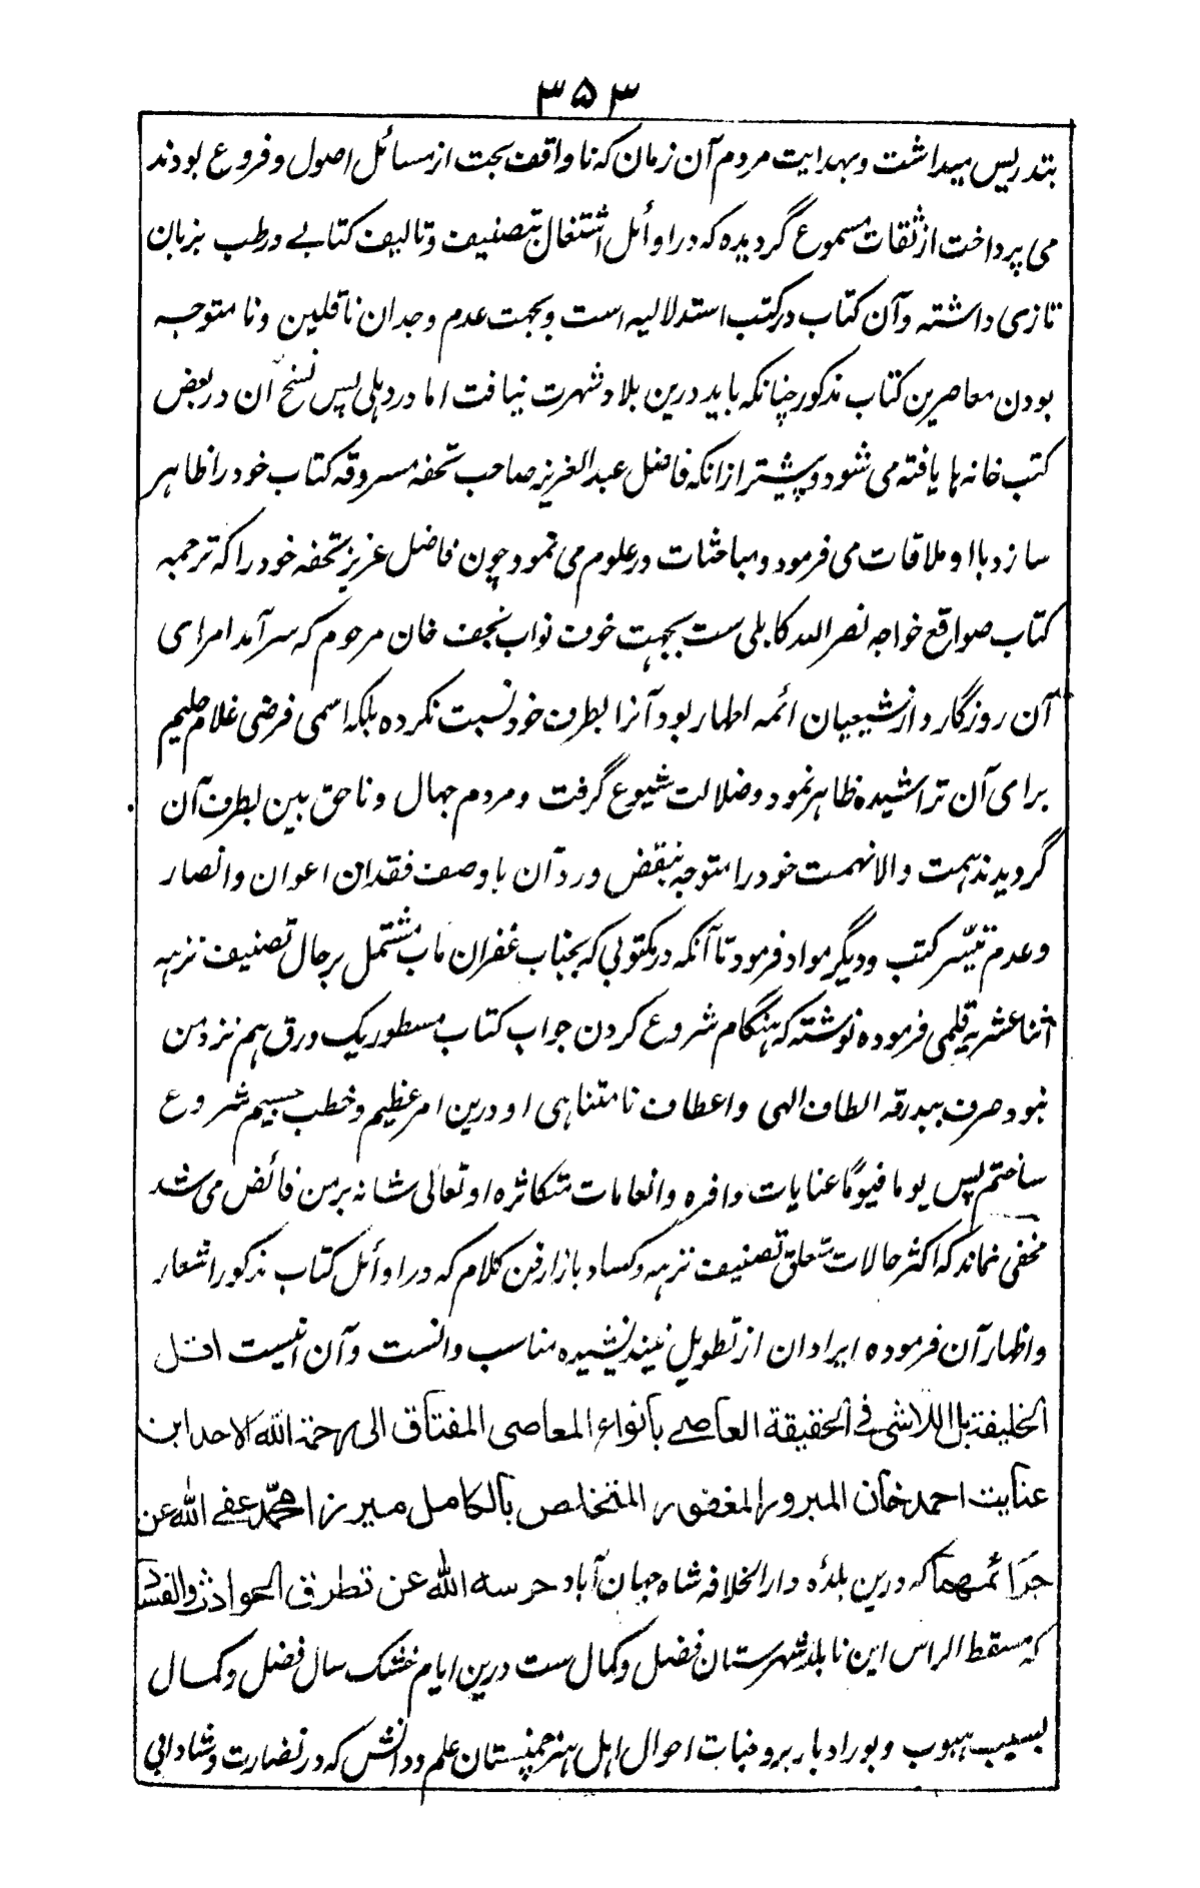 ۳۵۳
بتدریس میداشت و بهدایت مردم آن زمان که ناواقف بحت از مسائل اصول و فروع بودند
می پرداخت از ثقات مسموع گردیده که در اوائل اشتغال بتصنیف و تالیف کتابے در طب بزبان
تازی داشته و آن کتاب در کتب استدلالیه است و بجهت عدم وجدان ناقلین و نا متوجه
بودن معاصرین کتاب مذکور چنانکه باید درین بلاد شهرت نیافت اما در دهلی پس نسخ آن در بعض
کتب خانه ها یافته می شود و پیشتر از انکه فاضل عبدالعزیز صاحب تحفه مسروقه کتاب خود را ظاهر
سازد با او ملاقات می فرمود و مباحثات در علوم می نمود چون فاضل عزیز تحفه خود را که ترجمه
کتاب صواقع خواجه نصر الله کابلی ست بجهت خوف نواب نجف خان مرحوم که سرآمد امرای
آن روزگار و از شیعیان ائمه اطهار بود آنرا بطرف خود نسبت نکرده بلکه اسمی فرضی غلام حلیم
برای آن تراشیده ظاهر نمود و ضلالت شیوع گرفت و مردم جهال و ناحق بین بطرف آن
گردیدند همت والا نهمت خود را متوجه بنقض و رد آن با وصف فقدان اعوان و انصار
و عدم تیسّر کتب و دیگر مواد فرمود تا آنکه در مکتوبی که بجناب غفران مآب مشتمل بر حال تصنیف نزهه
اثنا عشریه قلمی فرموده نوشته که هنگام شروع کردن جواب کتاب مسطور یک ورق هم نزد من
نبود صرف ببدرقه الطاف الهی و اعطاف نامتناهی او درین امر عظیم و خطب جسیم شروع
ساختم پس یوما فیوماً عنایات وافره و انعامات متکاثره او تعالی شانه بر من فائض می شد
مخفی نماند که اکثر حالات متعلق تصنیف نزهه و کساد بازار فن کلام که در اوائل کتاب مذکور اشعار
و اظهار آن فرموده ایراد آن از تطویل نیندیشیده مناسب دانست و آن اینست اقل
الخلیفة بل اللاشی فی الحقیقة العاصے بانواع المعاصی المفتاق الی رحمة الله الاحد ابن
عنایت احمد خان المبرور المغفور المتخلص بالکامل میرزا محمّد عفی الله عن
جرائمهما که درین بلدۀ دار الخلافه شاه جهان آباد حرسه الله عن تطرق الحوادث والفساد
که مسقط الراس این نابلد شهرستان فضل و کمال ست درین ایام خشک سال فضل و کمال
بسبب هبوب دبور ادبار بر وجنات احوال اهل هنر چمنستان علم و دانش که در نضارت و شادابی